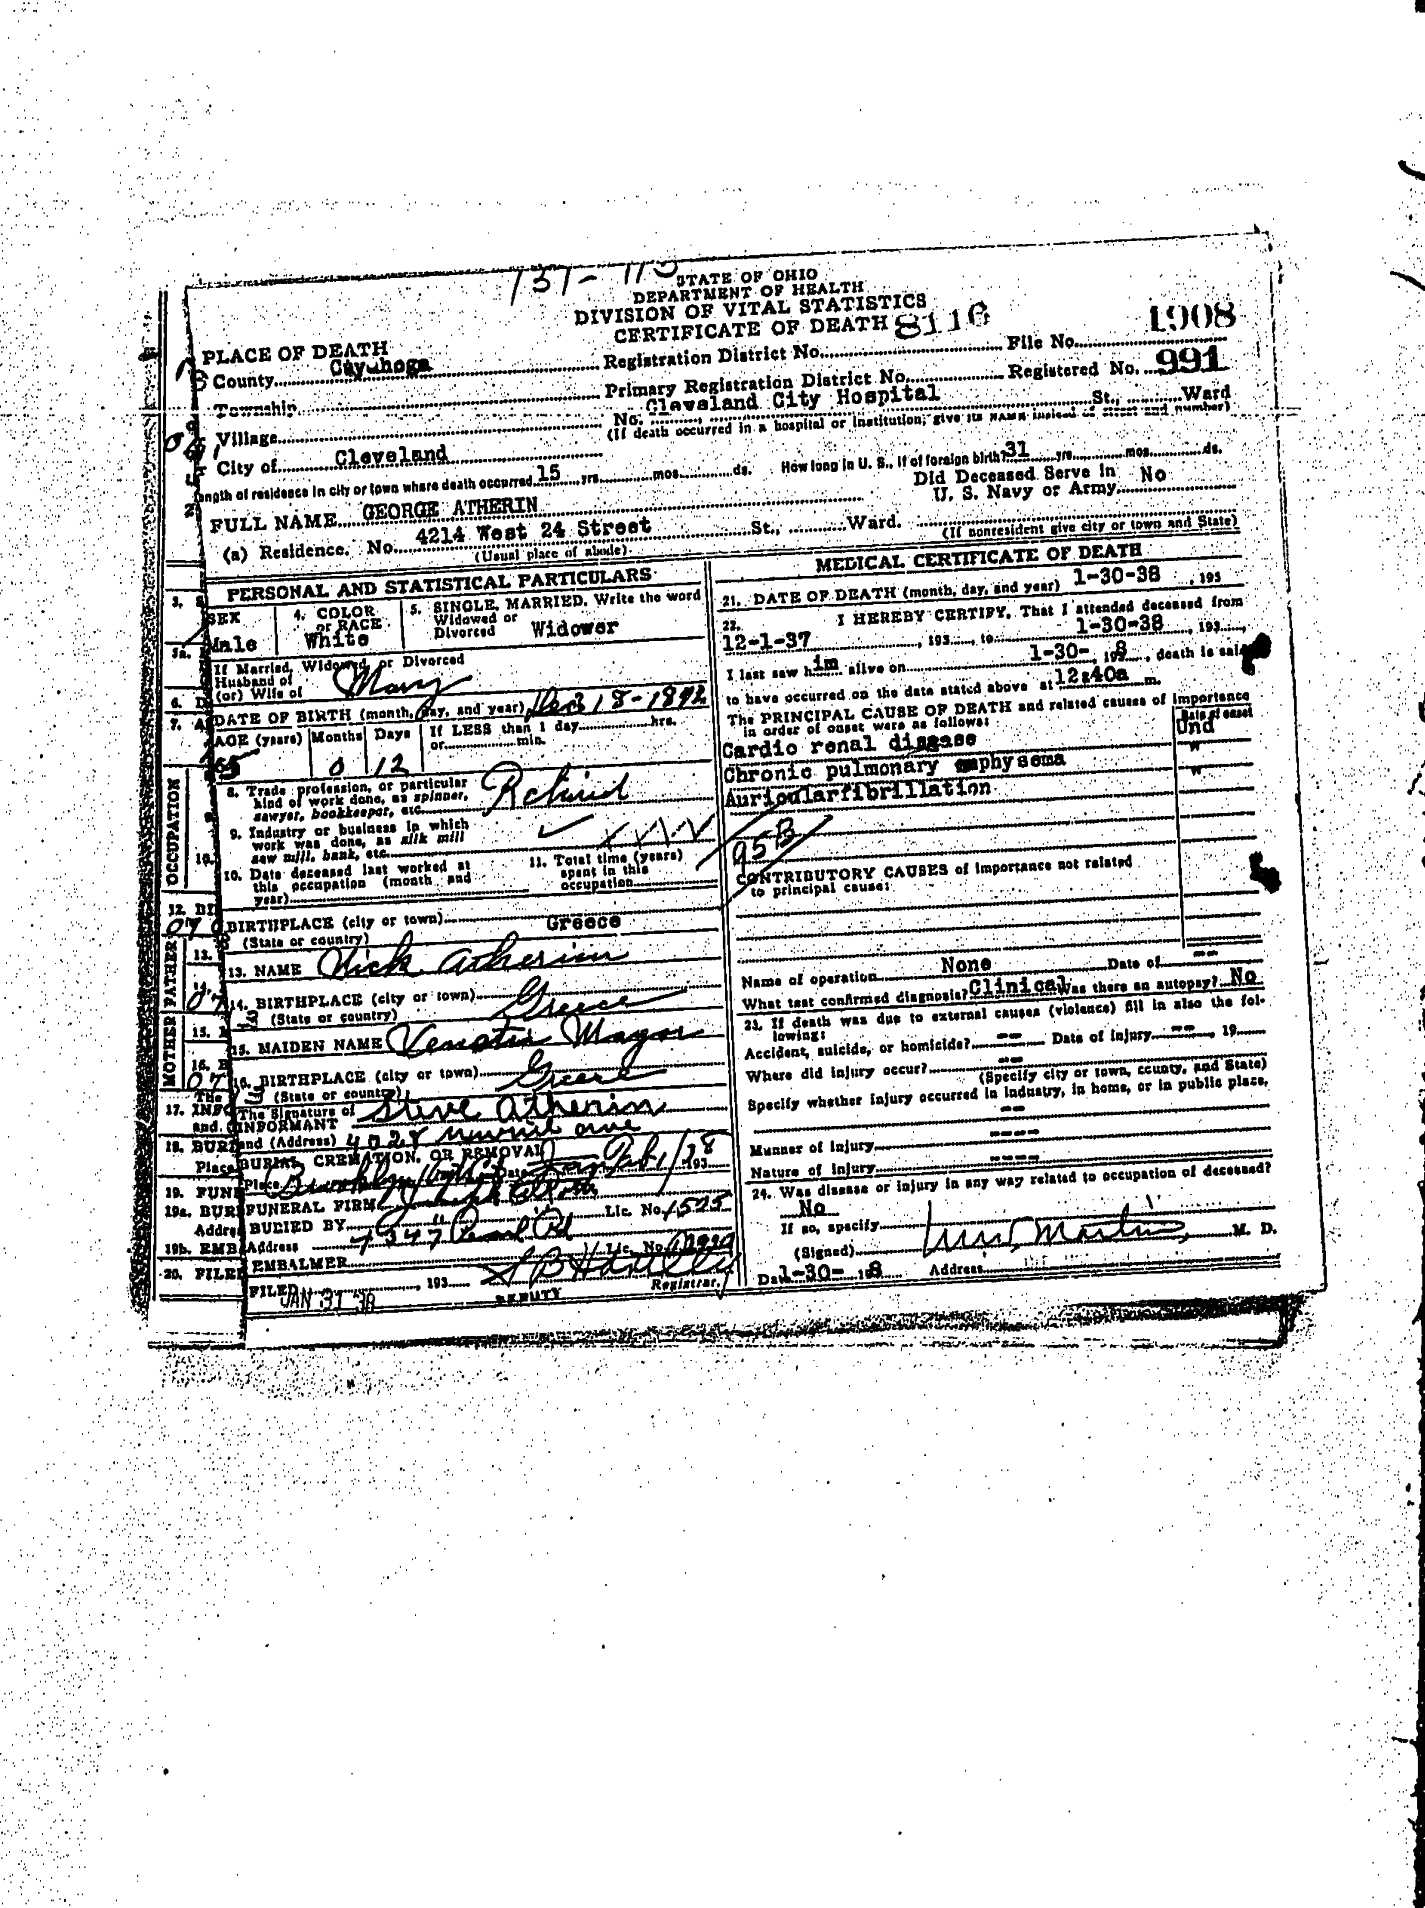 STATE OF OHIO
DEPARTMENT OF HEALTH
DIVISION OF VITAL STATISTICS
CERTIFICATE OF DEATH 8116
1908
PLACE OF DEATH
County Cuyahoga Registration District No. File No.
Township Primary Registration District No. Registered No. 991
Village No. Cleveland City Hospital St., Ward
(If death occurred in a hospital or institution, give its NAME instead of street and number)
City of Cleveland
Length of residence in city or town where death occurred 15 yrs. mos. ds. How long in U. S., if of foreign birth? 31 yrs. mos. ds.
FULL NAME GEORGE ATHERIN Did Deceased Serve in U. S. Navy or Army No
(a) Residence. No. 4214 West 24 Street St., Ward.
(Usual place of abode) (If nonresident give city or town and State)
PERSONAL AND STATISTICAL PARTICULARS
SEX Male
4. COLOR or RACE White
5. SINGLE, MARRIED, Write the word
Widowed or
Divorced Widower
If Married, Widowed or Divorced
Husband of
(or) Wife of Mary
DATE OF BIRTH (month, day, and year)
AGE (years) Months Days If LESS than 1 day hrs.
or min.
0 12
8. Trade profession, or particular
kind of work done, as spinner,
sawyer, bookkeeper, etc. Retired
9. Industry or business in which
work was done, as silk mill
saw mill, bank, etc.
10. Date deceased last worked at
this occupation (month and
year)
11. Total time (years)
spent in this
occupation
BIRTHPLACE (city or town) Greece
(State or country)
13. NAME Nick Atherin
14. BIRTHPLACE (city or town) Greece
(State or country)
15. MAIDEN NAME
16. BIRTHPLACE (city or town) Greece
(State or country)
The Signature of
INFORMANT Steve Atherin
and (Address) 4028
BURIAL, CREMATION, OR REMOVAL
Place Date 193
FUNERAL FIRM Lic. No. 1525
BURIED BY
Address Pearl Rd
EMBALMER Lic. No.
FILED JAN 31 '38 , 193
DEPUTY Registrar.
MEDICAL CERTIFICATE OF DEATH
21. DATE OF DEATH (month, day, and year) 1-30-38 , 193
22. I HEREBY CERTIFY, That I attended deceased from
12-1-37 , 193 , to 1-30-38 , 193 ,
I last saw him alive on 1-30- , 1938 , death is said
to have occurred on the date stated above at 12:40a m.
The PRINCIPAL CAUSE OF DEATH and related causes of importance
in order of onset were as follows: Date of onset
Cardio renal disease Und
Chronic pulmonary emphysema "
Auricularfibrillation "
95B
CONTRIBUTORY CAUSES of importance not related
to principal cause:
Name of operation None Date of --
What test confirmed diagnosis? Clinical Was there an autopsy? No
23. If death was due to external causes (violence) fill in also the following:
Accident, suicide, or homicide? -- Date of injury -- , 19
Where did injury occur? --
(Specify city or town, county, and State)
Specify whether injury occurred in industry, in home, or in public place,
--
Manner of injury ----
Nature of injury ----
24. Was disease or injury in any way related to occupation of deceased?
No
If so, specify
(Signed) M. D.
Date 1-30- 1938 Address
OCCUPATION
FATHER
MOTHER